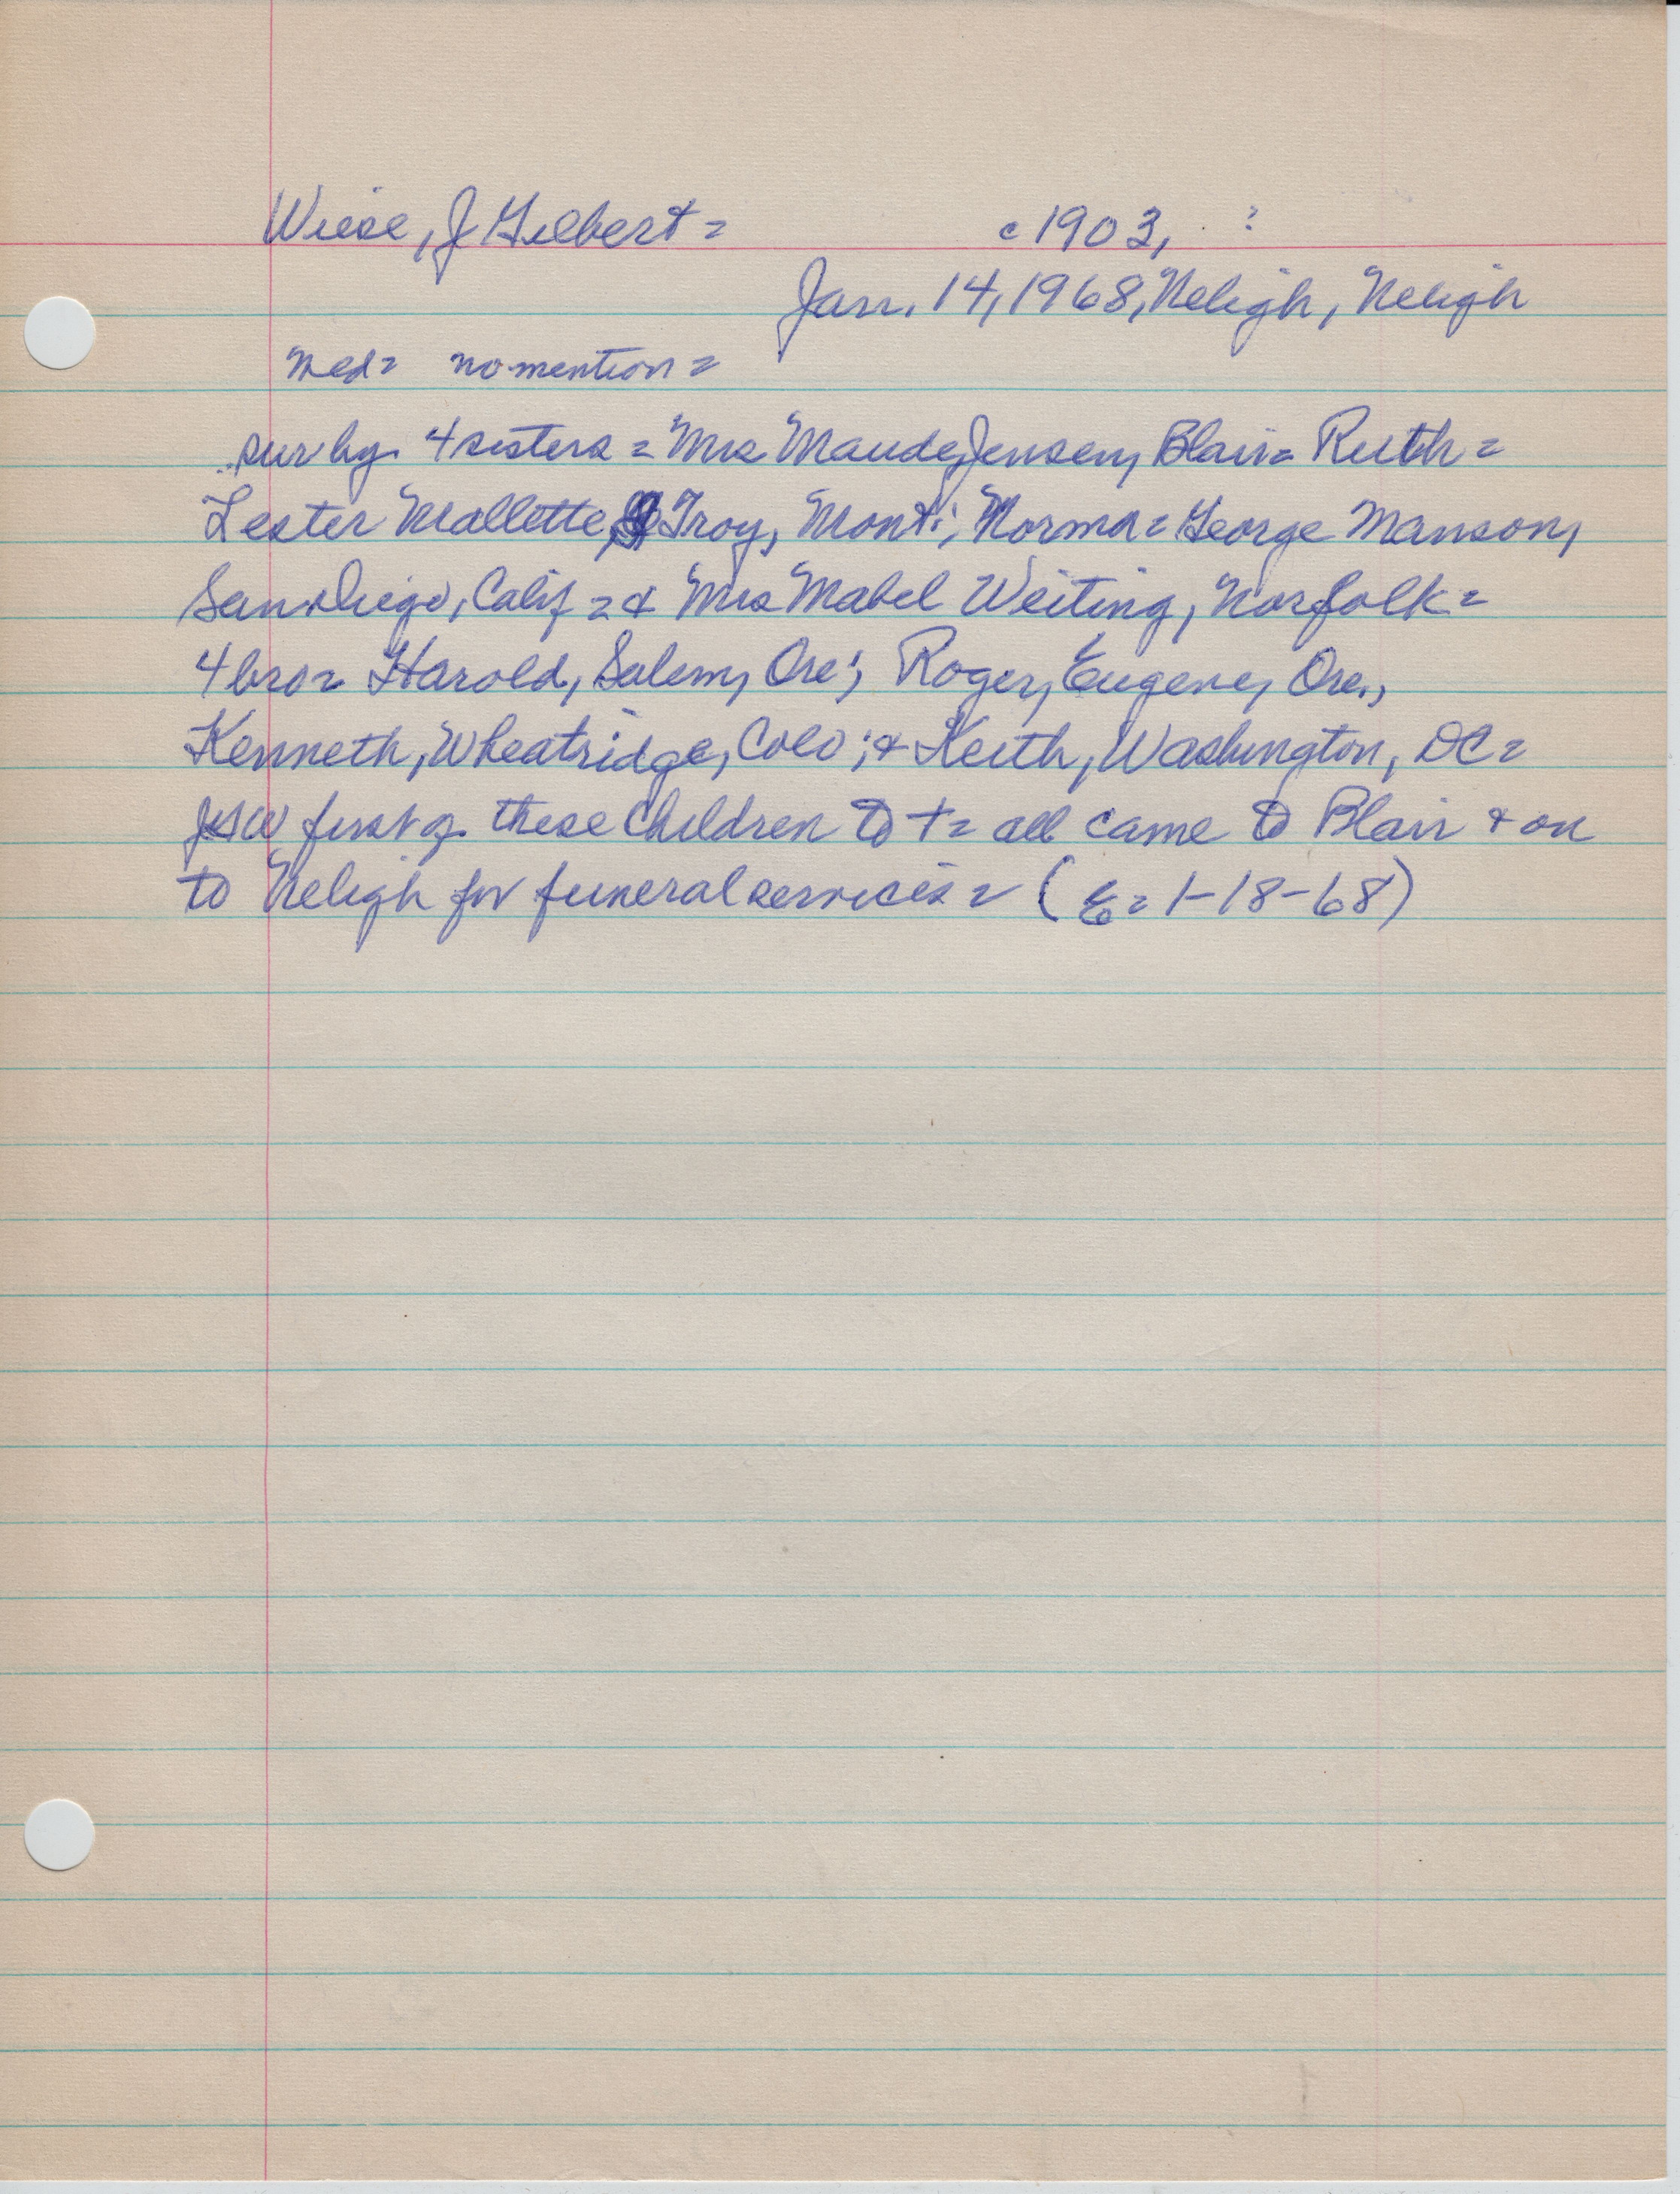 Wiese, J Gilbert = c 1903, ?
Jan. 14, 1968, Neligh, Neligh
med = no mention =
sur by 4 sisters = Mrs Maude Jensen, Blair = Ruth =
Lester Mallette, Troy, Mont; Norma = George Manson,
San Diego, Calif = & Mrs Mabel Weiting, Norfolk =
4 bro = Harold, Salem, Ore; Roger, Eugene, Ore.,
Kenneth, Wheatridge, Colo; & Keith, Washington, DC =
first of these children to + = all came to Blair & on
to Neligh for funeral services = (E = 1-18-68)